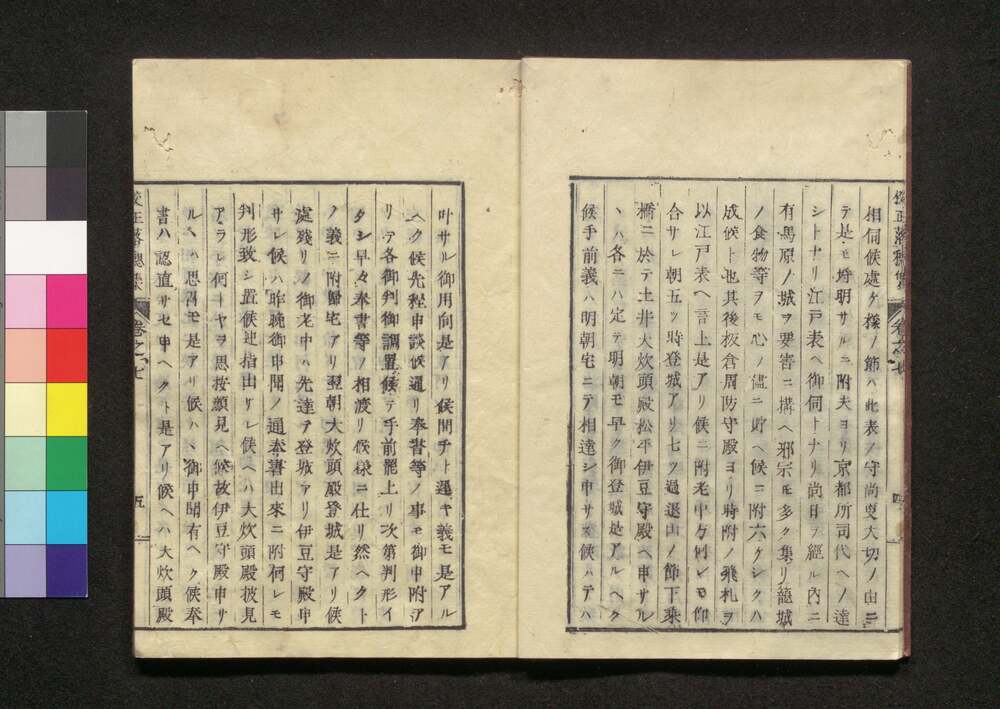 相伺候處ケ樣ノ節ハ此表ノ守尚更大切ノ由ニ
テ是モ埒明サルニ附夫ヨリ京都所司代ヘノ達
シトナリ江戸表ヘ御伺トナリ尚日ヲ經ル内ニ
有馬原ノ城ヲ要害ニ構ヘ邪宗モ多ク集リ籠城
ノ食物等ヲモ心ノ儘ニ貯ヘ候ニ附六ケシクハ
成候ト也其後板倉周防守殿ヨリ時附ノ飛札ヲ
以江戸表ヘ言上是アリ候ニ附老中方何レモ仰
合サレ朝五ツ時登城アリ七ツ過退出ノ節下乗
橋ニ於テ土井大炊頭殿松平伊豆守殿ヘ申サル
ヽハ各ニハ定テ明朝モ早ク御登城是アルヘク
候手前義ハ明朝宅ニテ相達シ申サス候ハテハ
叶サル御用向是アリ候間チト遲ヤ義モ是アル
ヘク候先程申談候通リ奉書等ノ事モ御申附ア
リテ各御判御調置候テ手前罷上リ次第判形イ
タシ早々奉書等ノ相渡リ候樣ニ仕リ然ヘクト
ノ義ニ附歸宅アリ翌朝大炊頭殿登城是アリ候
處殘リノ御老中ハ先達テ登城アリ伊豆守殿申
サレ候ハ昨晩御申聞ノ通奉書出來ニ附何レモ
判形致シ置候迚指出サレ候ヘハ大炊頭殿披見
アラレ何トヤヲ思按顔見ヘ候故伊豆守殿申サ
ルヽハ思召モ是アリ候ハヽ御申聞有ヘク候奉
書ハ認直サセ申ヘクト是アリ候ヘハ大炊頭殿
校正落穗集
卷之七
五